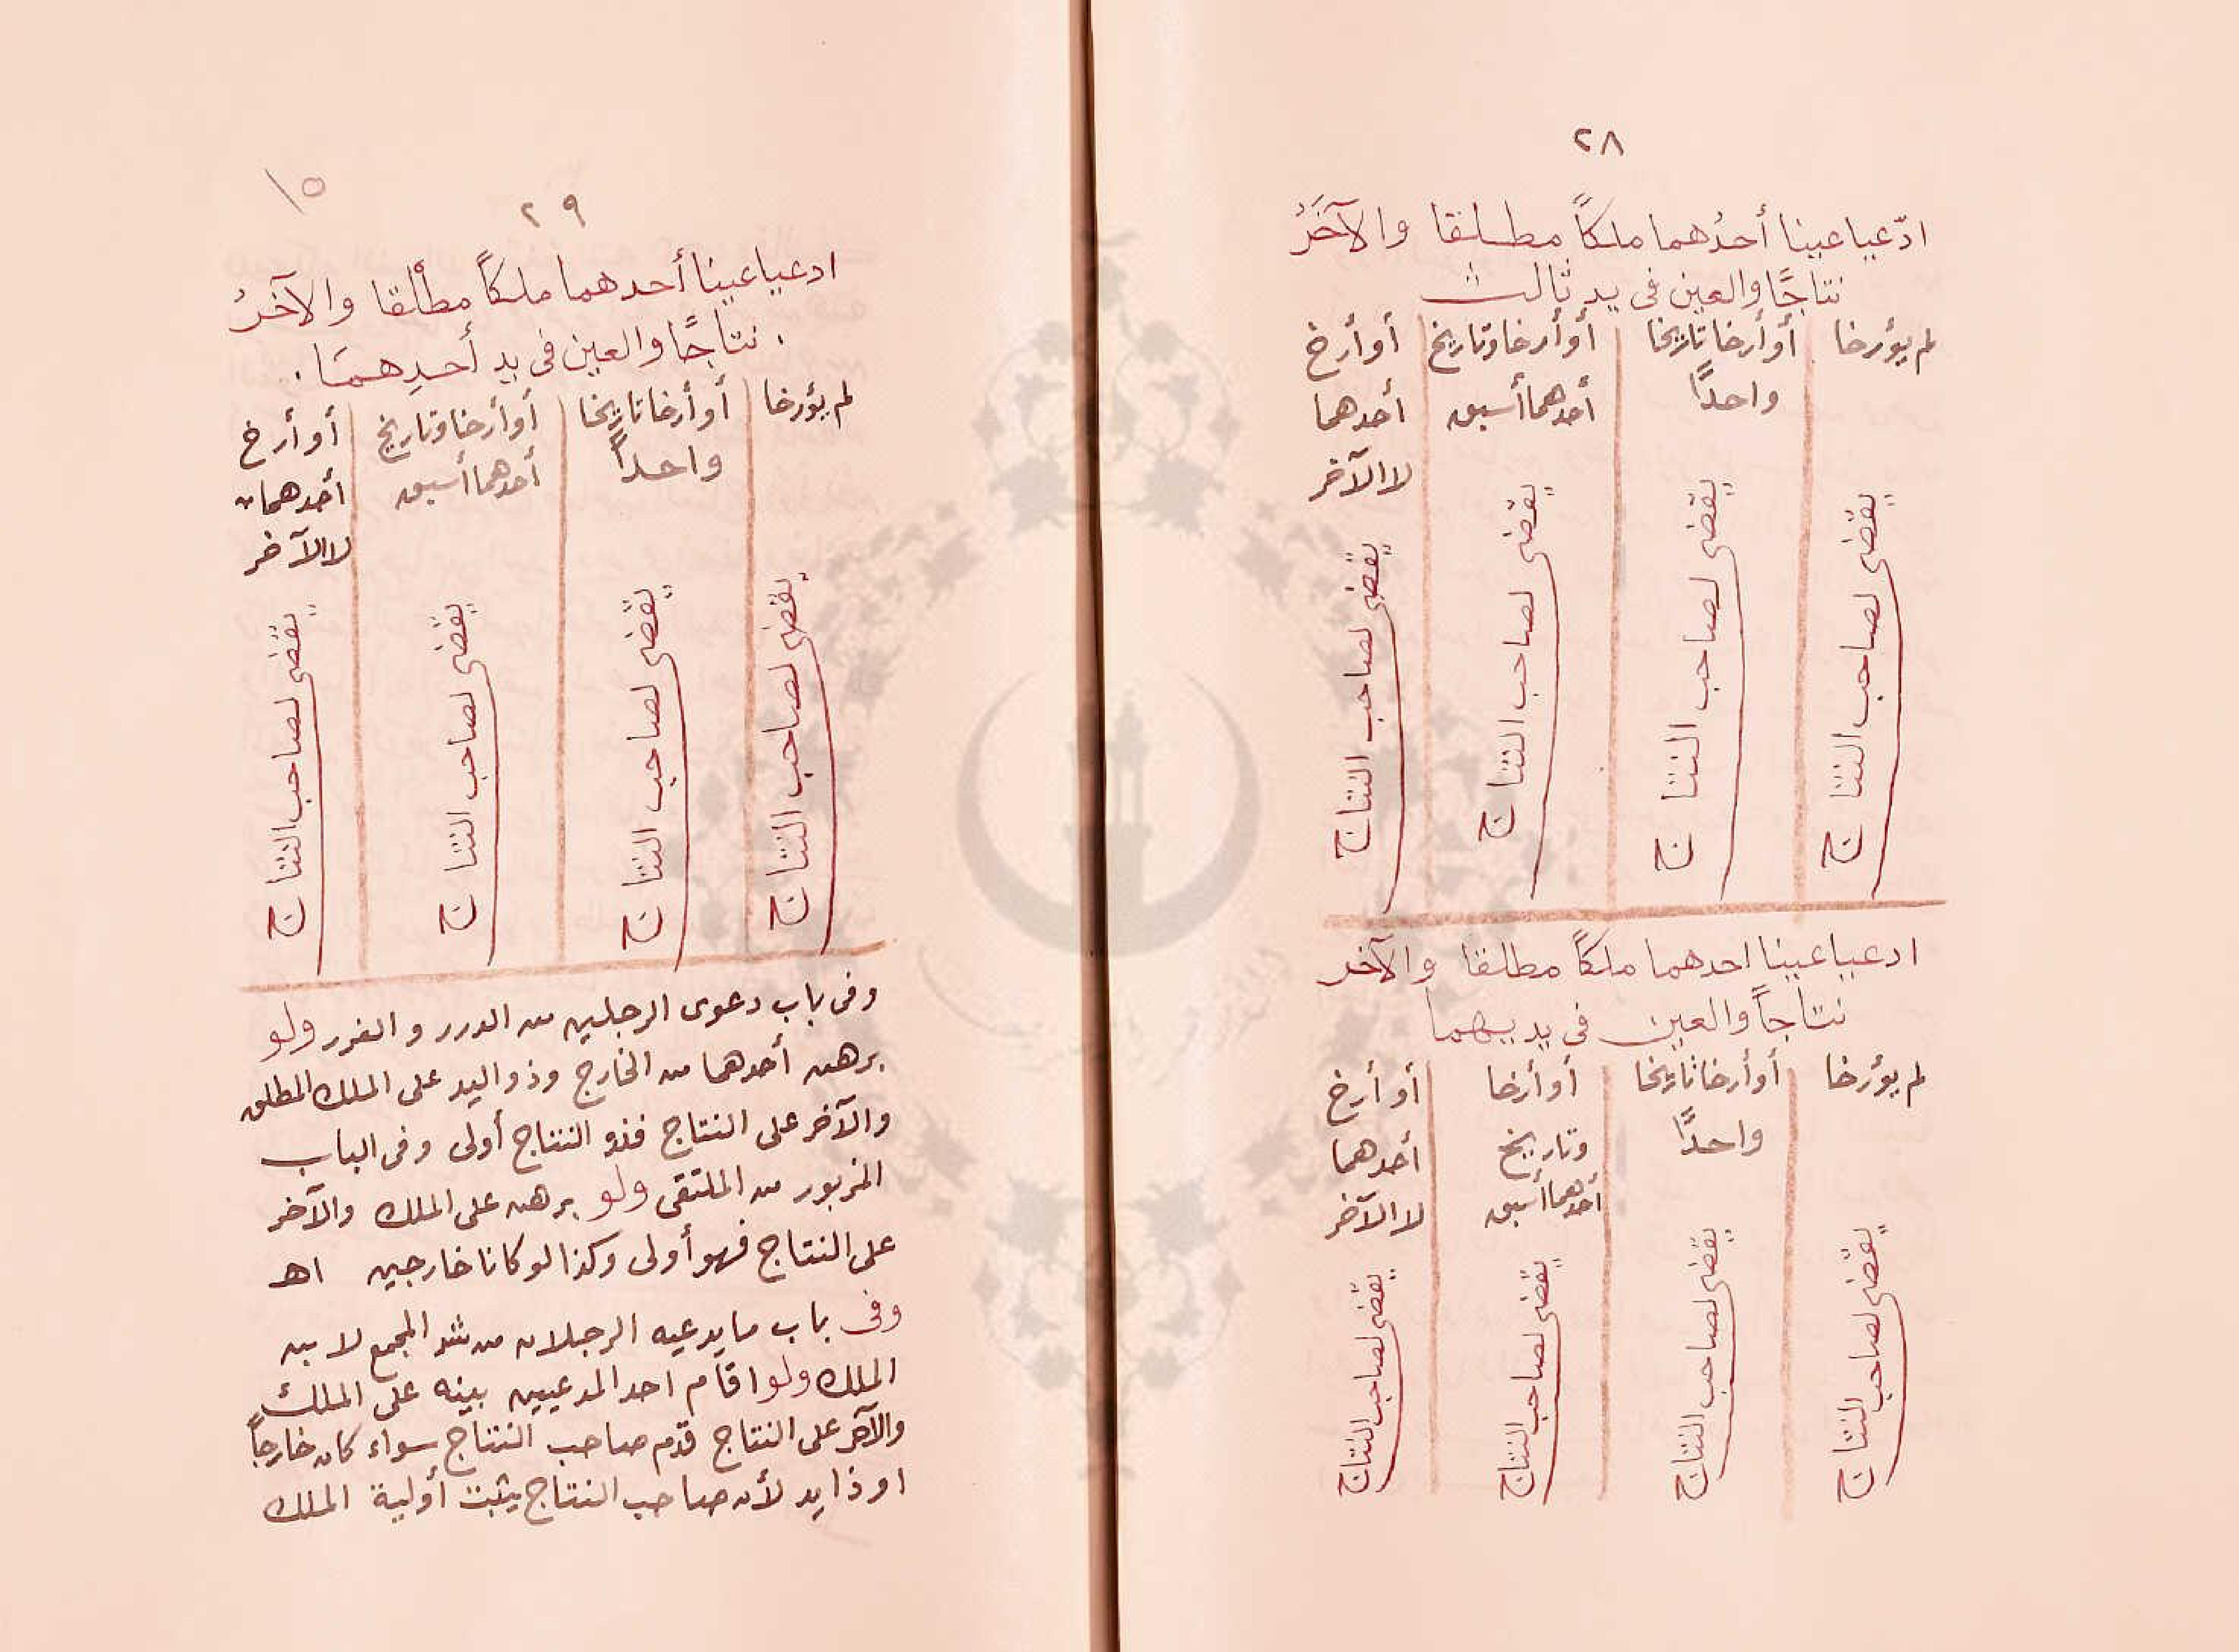 ٢٨
ادّعيا عينا أحدُهما ملكاً مطلقا والآخَرُ
نتاجًا والعين فى يد ثالث
لم يؤرخا
أو أرخا تاريخا
واحداً
أو أرخا وتاريخ
أحدهما أسبق
أو أرخ
أحدهما
لا الآخر
يقضى لصاحب النتاج
يقضى لصاحب النتاج
يقضى لصاحب النتاج
يقضى لصاحب النتاج
ادعيا عينا احدهما ملكاً مطلقا والآخر
نتاجاً والعين فى يديهما
لم يؤرخا
أو أرخا تاريخا
واحدًا
أو أرخا
وتاريخ
أحدهما أسبق
أو أرخ
أحدهما
لا الآخر
يقضى لصاحب النتاج
يقضى لصاحب النتاج
يقضى لصاحب النتاج
يقضى لصاحب النتاج
١٥
٢٩
ادعيا عينا أحدهما ملكاً مطلقا والآخرُ
نتاجًا والعين فى يد أحدِهمَا.
لم يؤرخا
أو أرخا تاريخا
واحداً
أو أرخا وتاريخ
أحدهما أسبق
أو أرخ
أحدهما
لا الآخر
يقضى لصاحب النتاج
يقضى لصاحب النتاج
يقضى لصاحب النتاج
يقضى لصاحب النتاج
وفى باب دعوى الرجلين من الدرر والغرر ولو
برهن أحدهما من الخارج وذو اليد على الملك المطلق
والآخر على النتاج فذو النتاج أولى وفى الباب
المزبور من الملتقى ولو برهن على الملك والآخر
على النتاج فهو أولى وكذا لو كانا خارجين اهـ
وفى باب ما يدعيه الرجلان من شرح المجمع لابن
الملك ولو اقام احد المدعيين بينه على الملك
والآخر على النتاج قدم صاحب النتاج سواء كان خارجاً
او ذا يد لأن صاحب النتاج يثبت أولية الملك